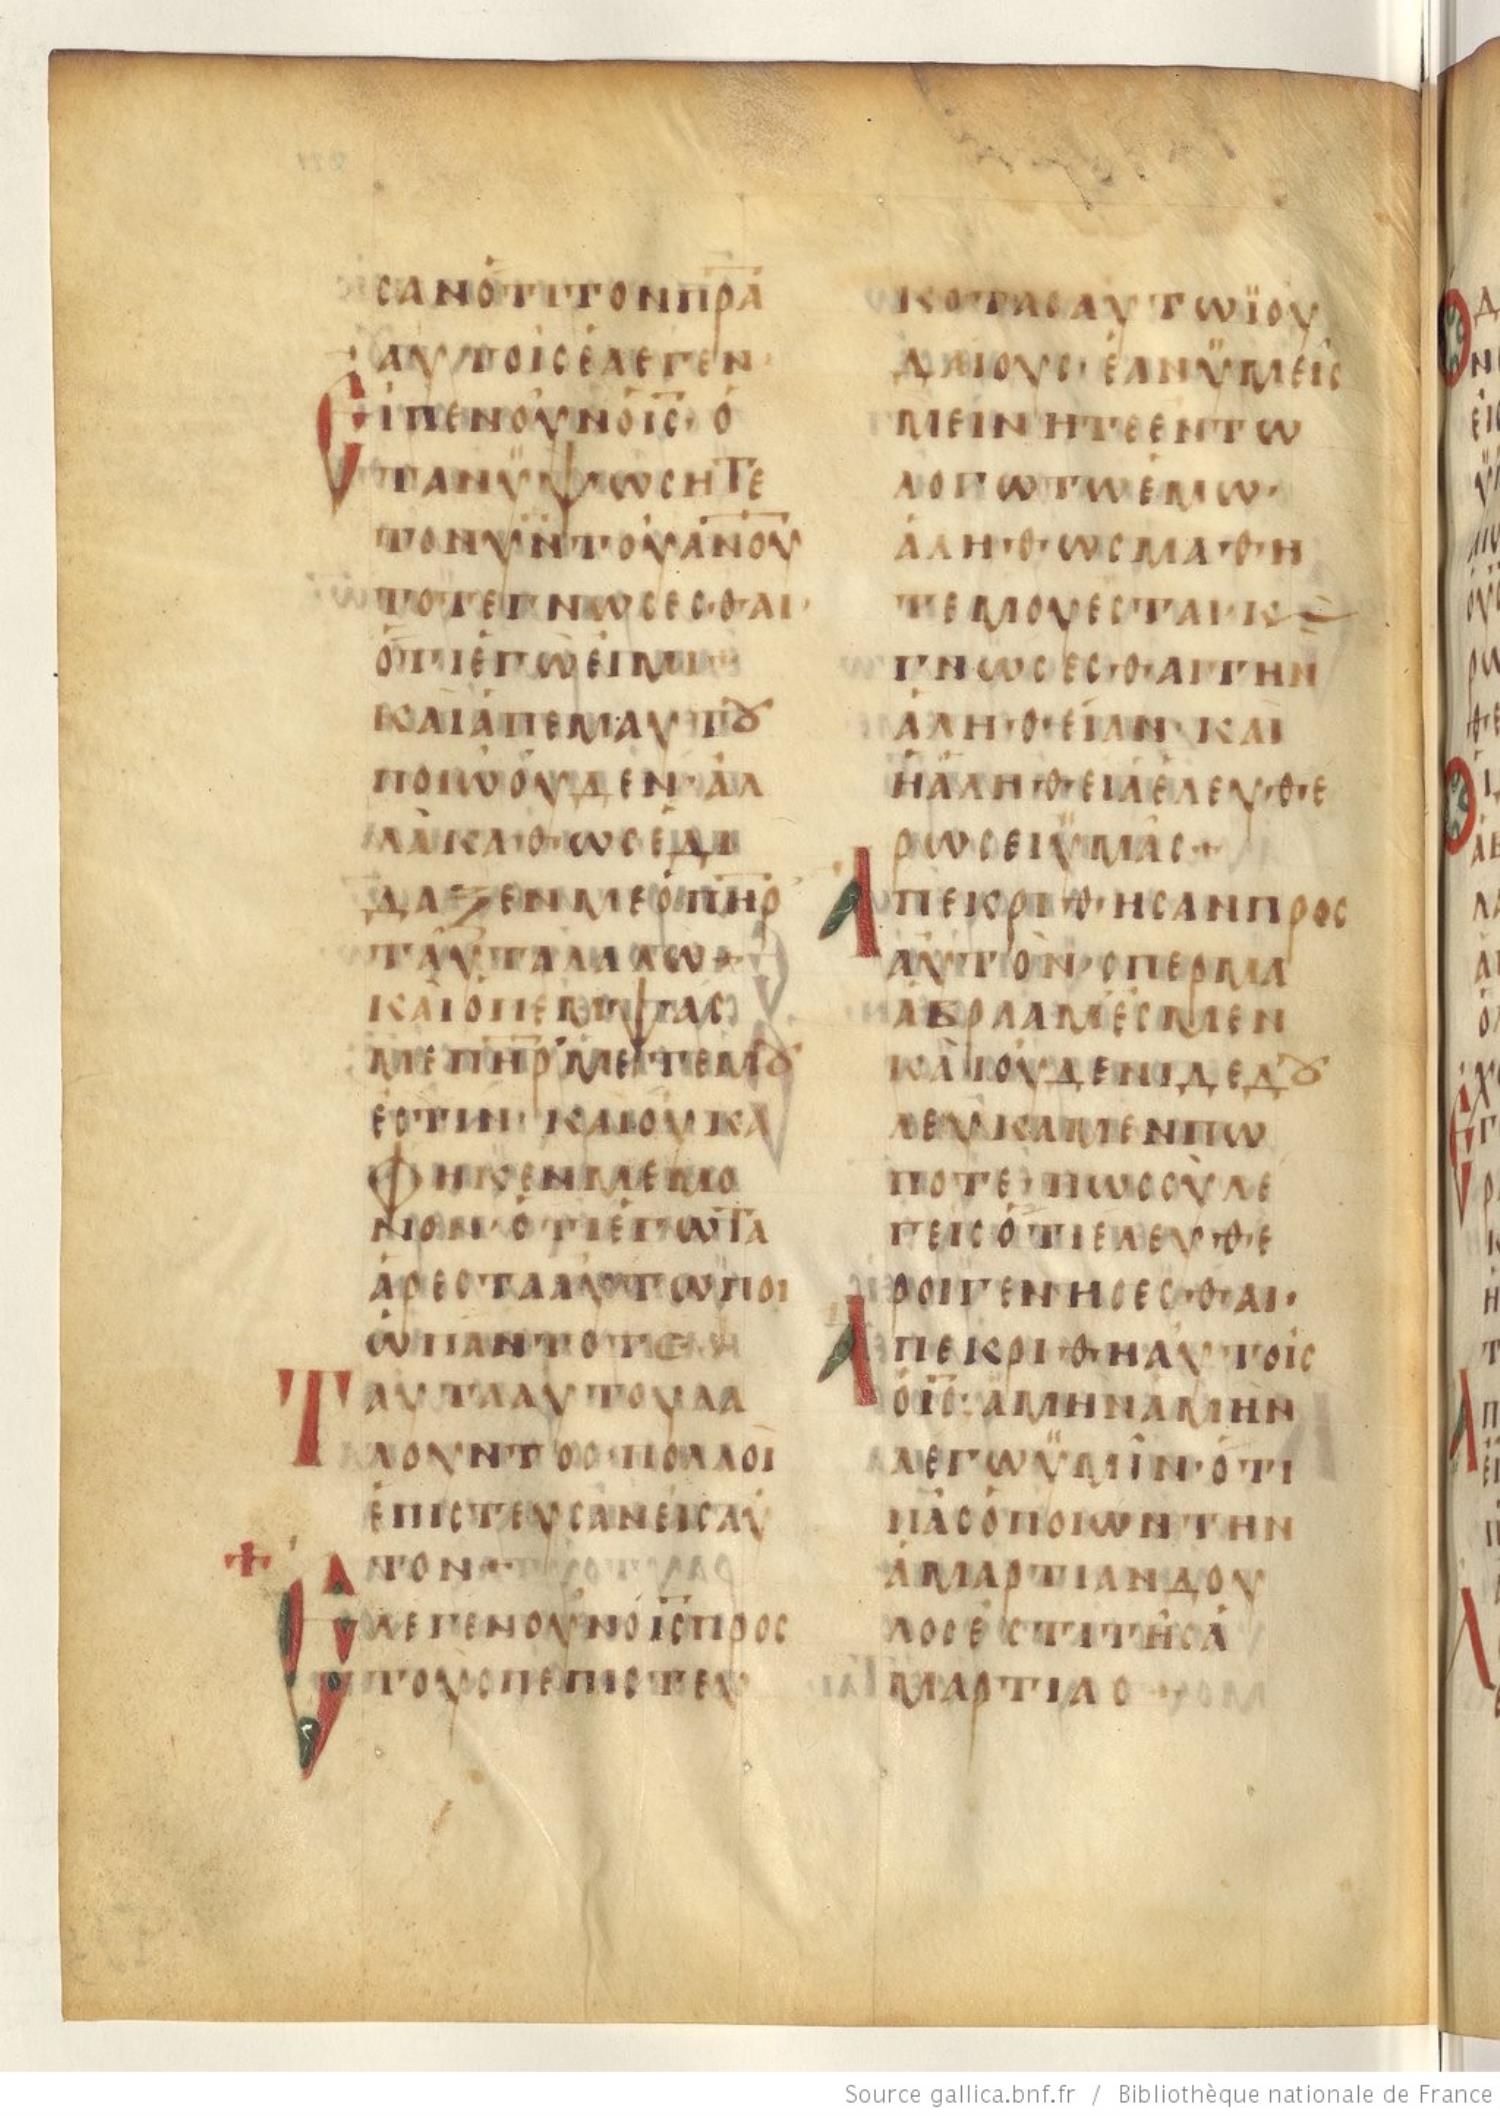 ϹΑΝΌΤΙΤΟΝΠΡ̅Α̅
ΑΥΤΟΙϹἘΛΕΓΕΝ·
ΕἸΠΕΝΟΥ̓ΝὉΙ̅Ϲ̅· Ὁ
ΤΑΝΫΨΩϹΗΤΕ
ΤΟΝΥ̅Ν̅ΤΟΥΑ̅Ν̅Ο̅Υ̅
ΤΟΤΕΓΝΩϹΕϹΘΑΙ·
ὍΤΙἘΓΩΕἸΜΙ·
ΚΑΙἈΠΕΜΑΥΤȢ
ΠΟΙΩΟΥ̓ΔΕΝ· ἈΛ
ΛᾺΚΑΘΩϹἘΔΙ
ΔΑΞΕΝΜΕὉΠ̅Η̅Ρ̅
ΤΑΥΤΑΛΑΛΩ+
ΚΑΙὉΠΕΜΨΑϹ
ΜΕΠ̅Η̅Ρ̅ΜΕΤΕΜȢ
ἘϹΤΙΝ· ΚΑΙΟΥΚΑ
ΦΗΚΕΝΜΕΜΟ
ΝΟΝ· ὉΤΙἘΓΩΤΑ
ἈΡΕϹΤΑΑΥΤΩΠΟΙ
ΩΠΑΝΤΟΤΕ
ΤΑΥΤΑΑΥΤΟΥΛΑ
ΛΟΥΝΤΟϹ· ΠΟΛΛΟῚ
ἘΠΙϹΤΕΥϹΑΝΕἸϹΑΥ
ΤΟΝ+
+ ΕΛΕΓΕΝΟΥ̓ΝὉΙ̅Ϲ̅ΠΡΟϹ
ΤΟΥϹΠΕΠΙϹΤΕΥ
ΚΟΤΑϹΑΥΤΩΪΟΥ
ΔΑΙΟΥϹ· ἘΑΝΫΜΕΙϹ
ΜΕΙΝΗΤΕΕΝΤΩ
ΛΟΓΩΤΩἘΜΩ·
ἈΛΗΘΩϹΜΑΘΗ
ΤΕΜΟΥΕϹΤΑΙ· Κ
ΓΝΩϹΕϹΘΑΙΤΗΝ
ἈΛΗΘΕΙΑΝ· ΚΑῚ
ἩἈΛΗΘΕΙΑἘΛΕΥΘΕ
ΡΩϹΕΙΫΜΑϹ+
ΑΠΕΚΡΙΘΗϹΑΝΠΡΟϹ
ΑΥΤΟΝ· ϹΠΕΡΜΑ
ἈΒΡΑΑΜἘϹΜΕΝ
ΚΑῚΟΥΔΕΝΙΔΕΔȢ
ΛΕΥΚΑΜΕΝΠΩ
ΠΟΤΕ· ΠΩϹϹΥΛΕ
ΓΕΙϹὉΤΙΕΛΕΥΘΕ
ΡΟΙΓΕΝΗϹΕϹΘΑΙ·
ΑΠΕΚΡΙΘΗΑΥΤΟΙϹ
ὉΙ̅Ϲ̅· ἈΜΗΝἈΜΗΝ
ΛΕΓΩΫΜΙΝ· ὉΤΙ
ΠΑϹὉΠΟΙΩΝΤΗΝ
ἉΜΑΡΤΙΑΝΔΟΥ
ΛΟϹἘϹΤΙΤΗϹἉ
ΜΑΡΤΙΑϹ
Source gallica.bnf.fr / Bibliothèque nationale de France